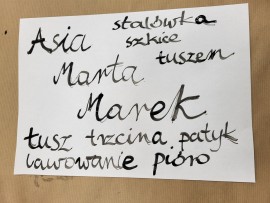 Asia stalówka
szkice
tuszem
Marta
Marek
tusz trzcina patyk
lawowanie pióro